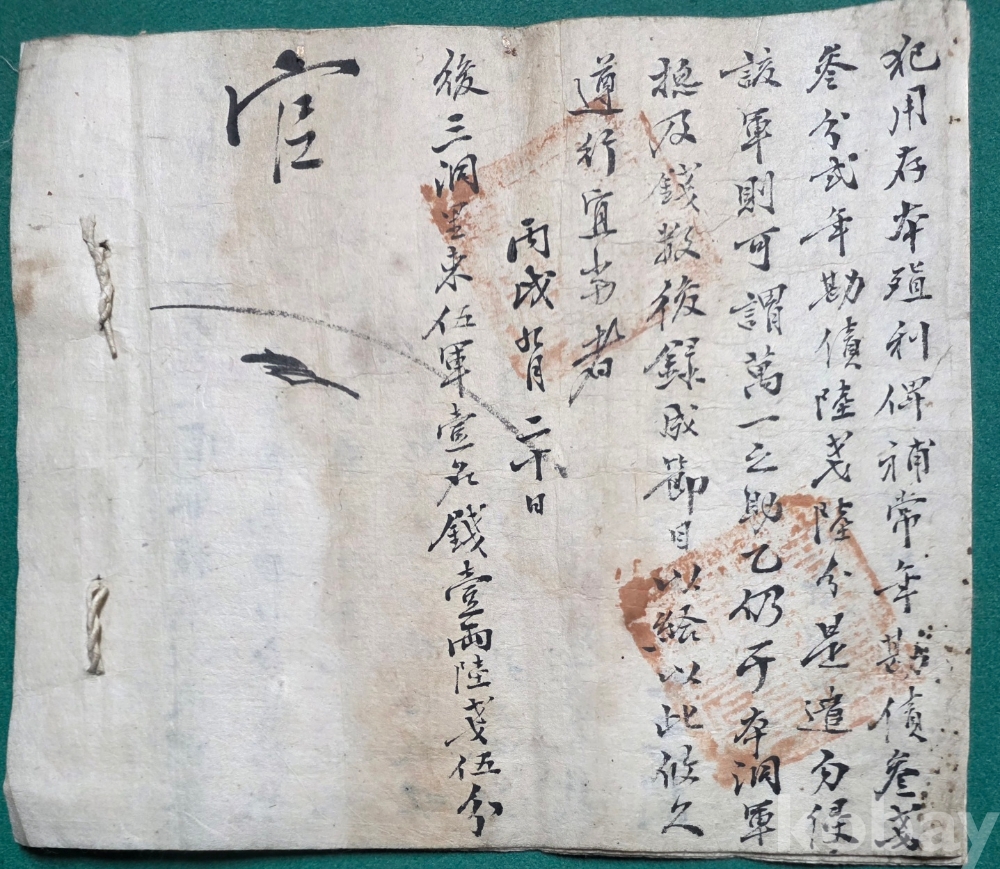 犯用存本殖利俾補常年勘債叄戔
叄分弍年勘債陸戔陸分是遣勿侵
該軍則可謂萬一之助乙仍于本洞軍
摠及錢數後錄成節目以給以此攸久
遵行宜當者
丙戌九月二十日
後三洞里來伍軍壹名錢壹兩陸戔伍分
官
kobay